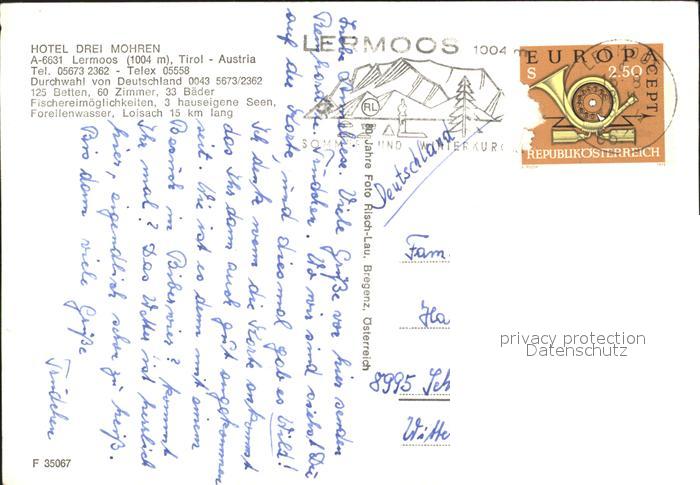 HOTEL DREI MOHREN
A-6631 Lermoos (1004 m), Tirol - Austria
Tel. 05673 2362 - Telex 05558
Durchwahl von Deutschland 0043 5673/2362
125 Betten, 60 Zimmer, 33 Bäder
Fischereimöglichkeiten, 3 hauseigene Seen,
Forellenwasser, Loisach 15 km lang
LERMOOS 1004 m
RL
SOMMER UND WINTERKUR
EUROPA
CEPT
S 2.50
REPUBLIK ÖSTERREICH
Viele Grüße von hier senden
Trudchen. Wo wir sind siehst Du
auf der Karte, und diesmal gab es Wild!
Ich denke wenn die Karte ankommt
das Ihr dann auch gut angekommen
seit. Wie ist es denn mit einem
Besuch in Biberwier? kommt
Ihr mal? Das Wetter ist herrlich
hier, eigendlich schon zu heiß.
Bis dann viele Grüße
Trudchen
80 Jahre Foto Risch-Lau, Bregenz, Österreich
Deutschland
Fam.
Ha
8995 Sch
Witte
privacy protection
Datenschutz
F 35067